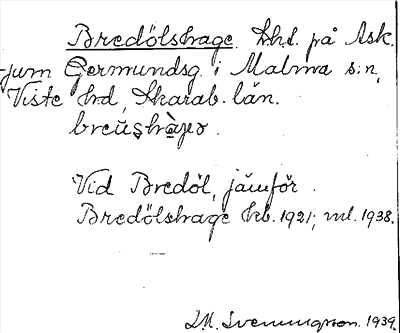 Bredölshage. Lht. på Ask-
jum Germundsg. i Malma s:n,
Viste hd, Skarab. län.
Vid Bredöl, jämför
Bredölshage hb. 1921; ml. 1938.
I.M. Svenningson. 1939.